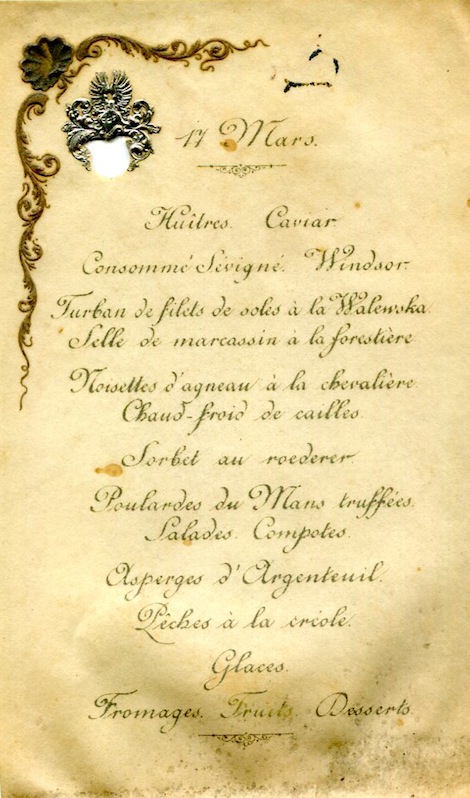 17 Mars.
Huîtres. Caviar.
Consommé Sévigné. Windsor.
Turban de filets de soles à la Walewska.
Selle de marcassin à la forestière
Noisettes d'agneau à la chevalière.
Chaud-froid de cailles.
Sorbet au roederer.
Poulardes du Mans truffées.
Salades. Compotes.
Asperges d'Argenteuil.
Pêches à la créole.
Glaces.
Fromages. Fruits. Desserts.